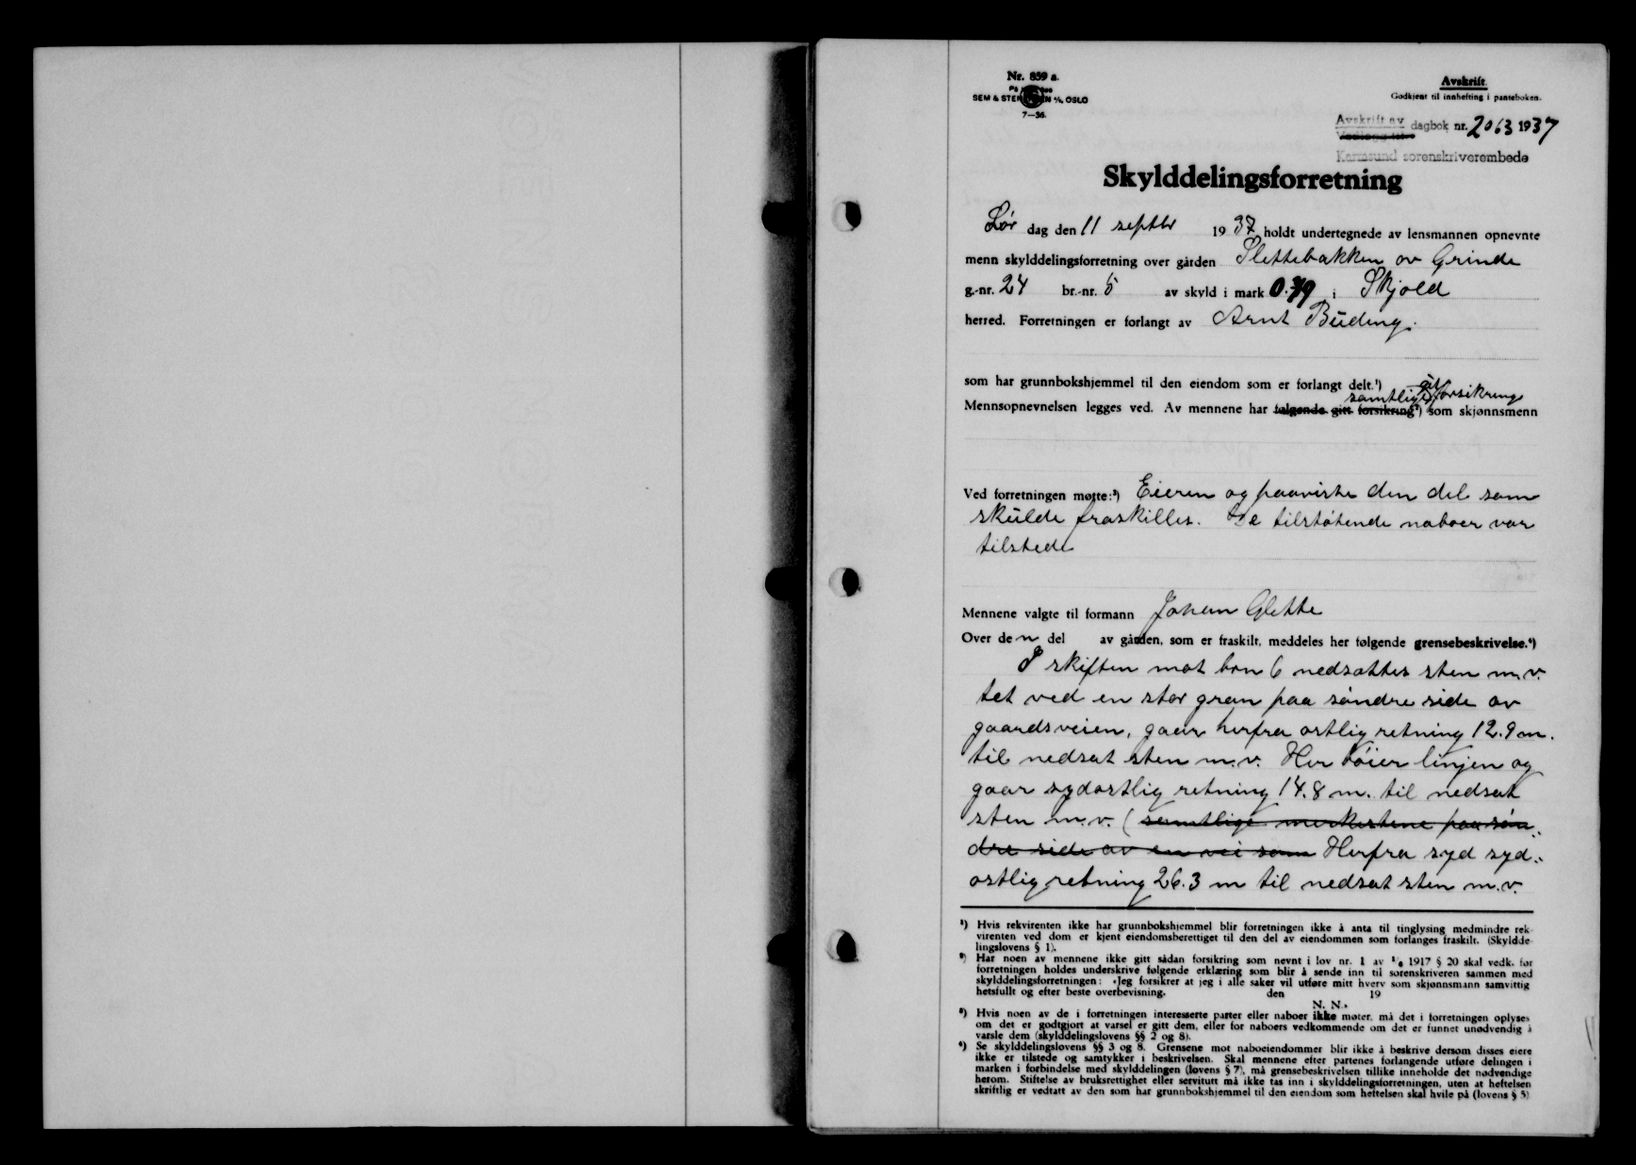 Nr. 859 a.
SEM & STENERSEN A/S, OSLO
7—36.
Avskrift.
Godkjent til innhefting i panteboken.
Avskrift av dagbok nr. 2063 1937
Karmsund sorenskriverembede
Skylddelingsforretning
Lør dag den 11 septbr 1937 holdt undertegnede av lensmannen opnevnte
menn skylddelingsforretning over gården Slettebakken av Grinde
g.-nr. 24 br.-nr. 5 av skyld i mark 0.49 i Skjold
herred. Forretningen er forlangt av Arnt Büding.
som har grunnbokshjemmel til den eiendom som er forlangt delt.¹)
samtlige git forsikring
Mennsopnevnelsen legges ved. Av mennene har følgende gitt forsikring²) som skjønnsmenn
Ved forretningen møtte:³) Eieren og paaviste den del som
skulde fraskilles. De tilstøtende naboer var
tilstede
Mennene valgte til formann Johan Glette
Over den del av gården, som er fraskilt, meddeles her følgende grensebeskrivelse.⁴)
I skiften mot brn 6 nedsattes sten m.v.
tet ved en stor gran paa søndre side av
gaardsveien, gaar herfra ostlig retning 12.9 m.
til nedsat sten m.v. Her bøier linjen og
gaar sydostlig retning 14.8 m. til nedsat
sten m.v. (samtlige merkestene paa søn-
dre side av en vei som Herfra syd syd-
ostlig retning 26.3 m til nedsat sten m.v.
¹) Hvis rekvirenten ikke har grunnbokshjemmel blir forretningen ikke å anta til tinglysing medmindre rek
virenten ved dom er kjent eiendomsberettiget til den del av eiendommen som forlanges fraskilt. (Skyldde
lingslovens § 1).
²) Har noen av mennene ikke gitt sådan forsikring som nevnt i lov nr. 1 av 1/6 1917 § 20 skal vedk. før
forretningen holdes underskrive følgende erklæring som blir å sende inn til sorenskriveren sammen med
skylddelingsforretningen: «Jeg forsikrer at jeg i alle saker vil utføre mitt hverv som skjønnsmann samvittig
hetsfullt og efter beste overbevisning. den 19
N. N.»
³) Hvis noen av de i forretningen interesserte parter eller naboer ikke møter, må det i forretningen oplyses
om det er godtgjort at varsel er gitt dem, eller for naboers vedkommende om det er funnet unødvendig å
varsle dem (skylddelingslovens §§ 2 og 8).
⁴) Se skylddelingslovens §§ 3 og 8. Grensene mot naboeiendommer blir ikke å beskrive dersom disses eiere
ikke er tilstede og samtykker i beskrivelsen. Skal mennene efter partenes forlangende utføre delingen i
marken i forbindelse med skylddelingen (lovens § 7), må grensebeskrivelsen tillike inneholde det nødvendige
herom. Stiftelse av bruksrettighet eller servitutt må ikke tas inn i skylddelingsforretningen, uten at heftelsen
skriftlig er vedtatt av den som har grunnbokshjemmel til den eiendom som heftelsen skal hvile på (lovens § 5)